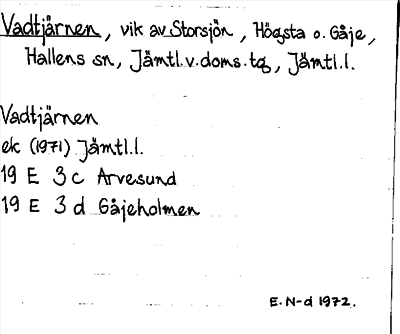 Vadtjärnen, vik av Storsjön, Högsta o. Gåje,
Hallens sn, Jämtl.v.doms.tg, Jämtl.l.
Vadtjärnen
ek (1971) Jämtl.l.
19 E 3c Arvesund
19 E 3d Gåjeholmen
E. N-d 1972.